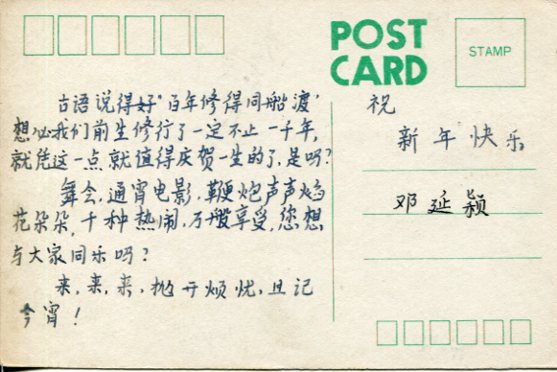 POST
CARD
STAMP
古语说得好"百年修得同船渡'
想必我们前生修行了一定不止一千年,
就凭这一点就值得庆贺一生的了,是吗?
舞会,通宵电影,鞭炮声声焰
花朵朵,千种热闹,万般享受,您想
与大家同乐吗?
来,来,来,抛开烦忧,且记
今宵!
祝
新年快乐
邓延颖